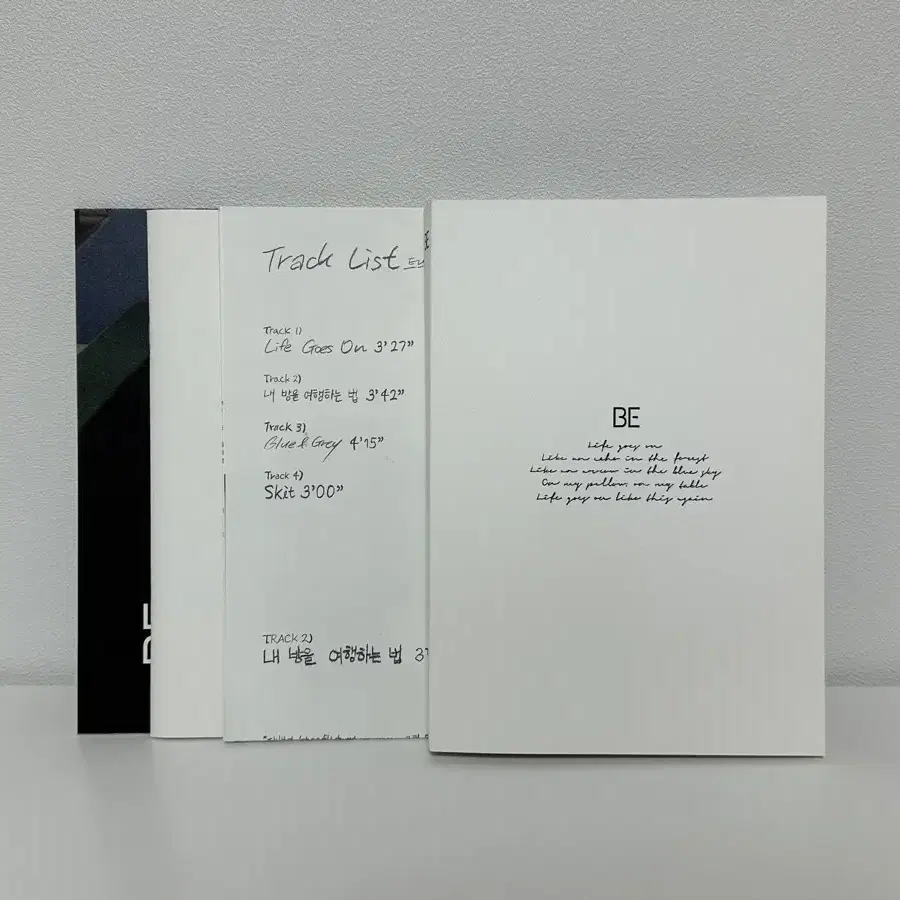 Track List
Track 1)
Life Goes On 3'27"
Track 2)
내 방을 여행하는 법 3'42"
Track 3)
Blue & Grey 4'15"
Track 4)
Skit 3'00"
TRACK 2)
내 방을 여행하는 법
BE
BE
Life goes on
Like an echo in the forest
Like an arrow in the blue sky
On my pillow, on my table
Life goes on like this again